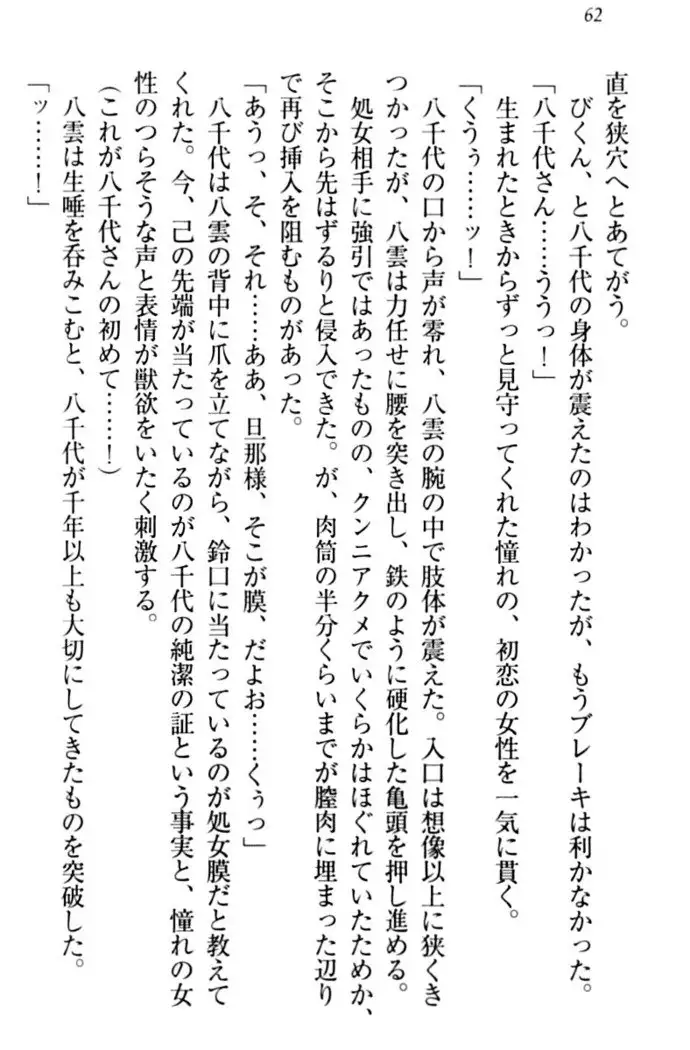 62
直を狭穴へとあてがう。
びくん、と八千代の身体が震えたのはわかったが、もうブレーキは利かなかった。
「八千代さん……ううっ！」
生まれたときからずっと見守ってくれた憧れの、初恋の女性を一気に貫く。
「くうぅ……ッ！」
八千代の口から声が零れ、八雲の腕の中で肢体が震えた。入口は想像以上に狭くき
つかったが、八雲は力任せに腰を突き出し、鉄のように硬化した亀頭を押し進める。
処女相手に強引ではあったものの、クンニアクメでいくらかはほぐれていたためか、
そこから先はずるりと侵入できた。が、肉筒の半分くらいまでが膣肉に埋まった辺り
で再び挿入を阻むものがあった。
「あうっ、そ、それ……ああ、旦那様、そこが膜、だよお……くぅっ」
八千代は八雲の背中に爪を立てながら、鈴口に当たっているのが処女膜だと教えて
くれた。今、己の先端が当たっているのが八千代の純潔の証という事実と、憧れの女
性のつらそうな声と表情が獣欲をいたく刺激する。
(これが八千代さんの初めて……！)
八雲は生唾を呑みこむと、八千代が千年以上も大切にしてきたものを突破した。
「ッ……！」